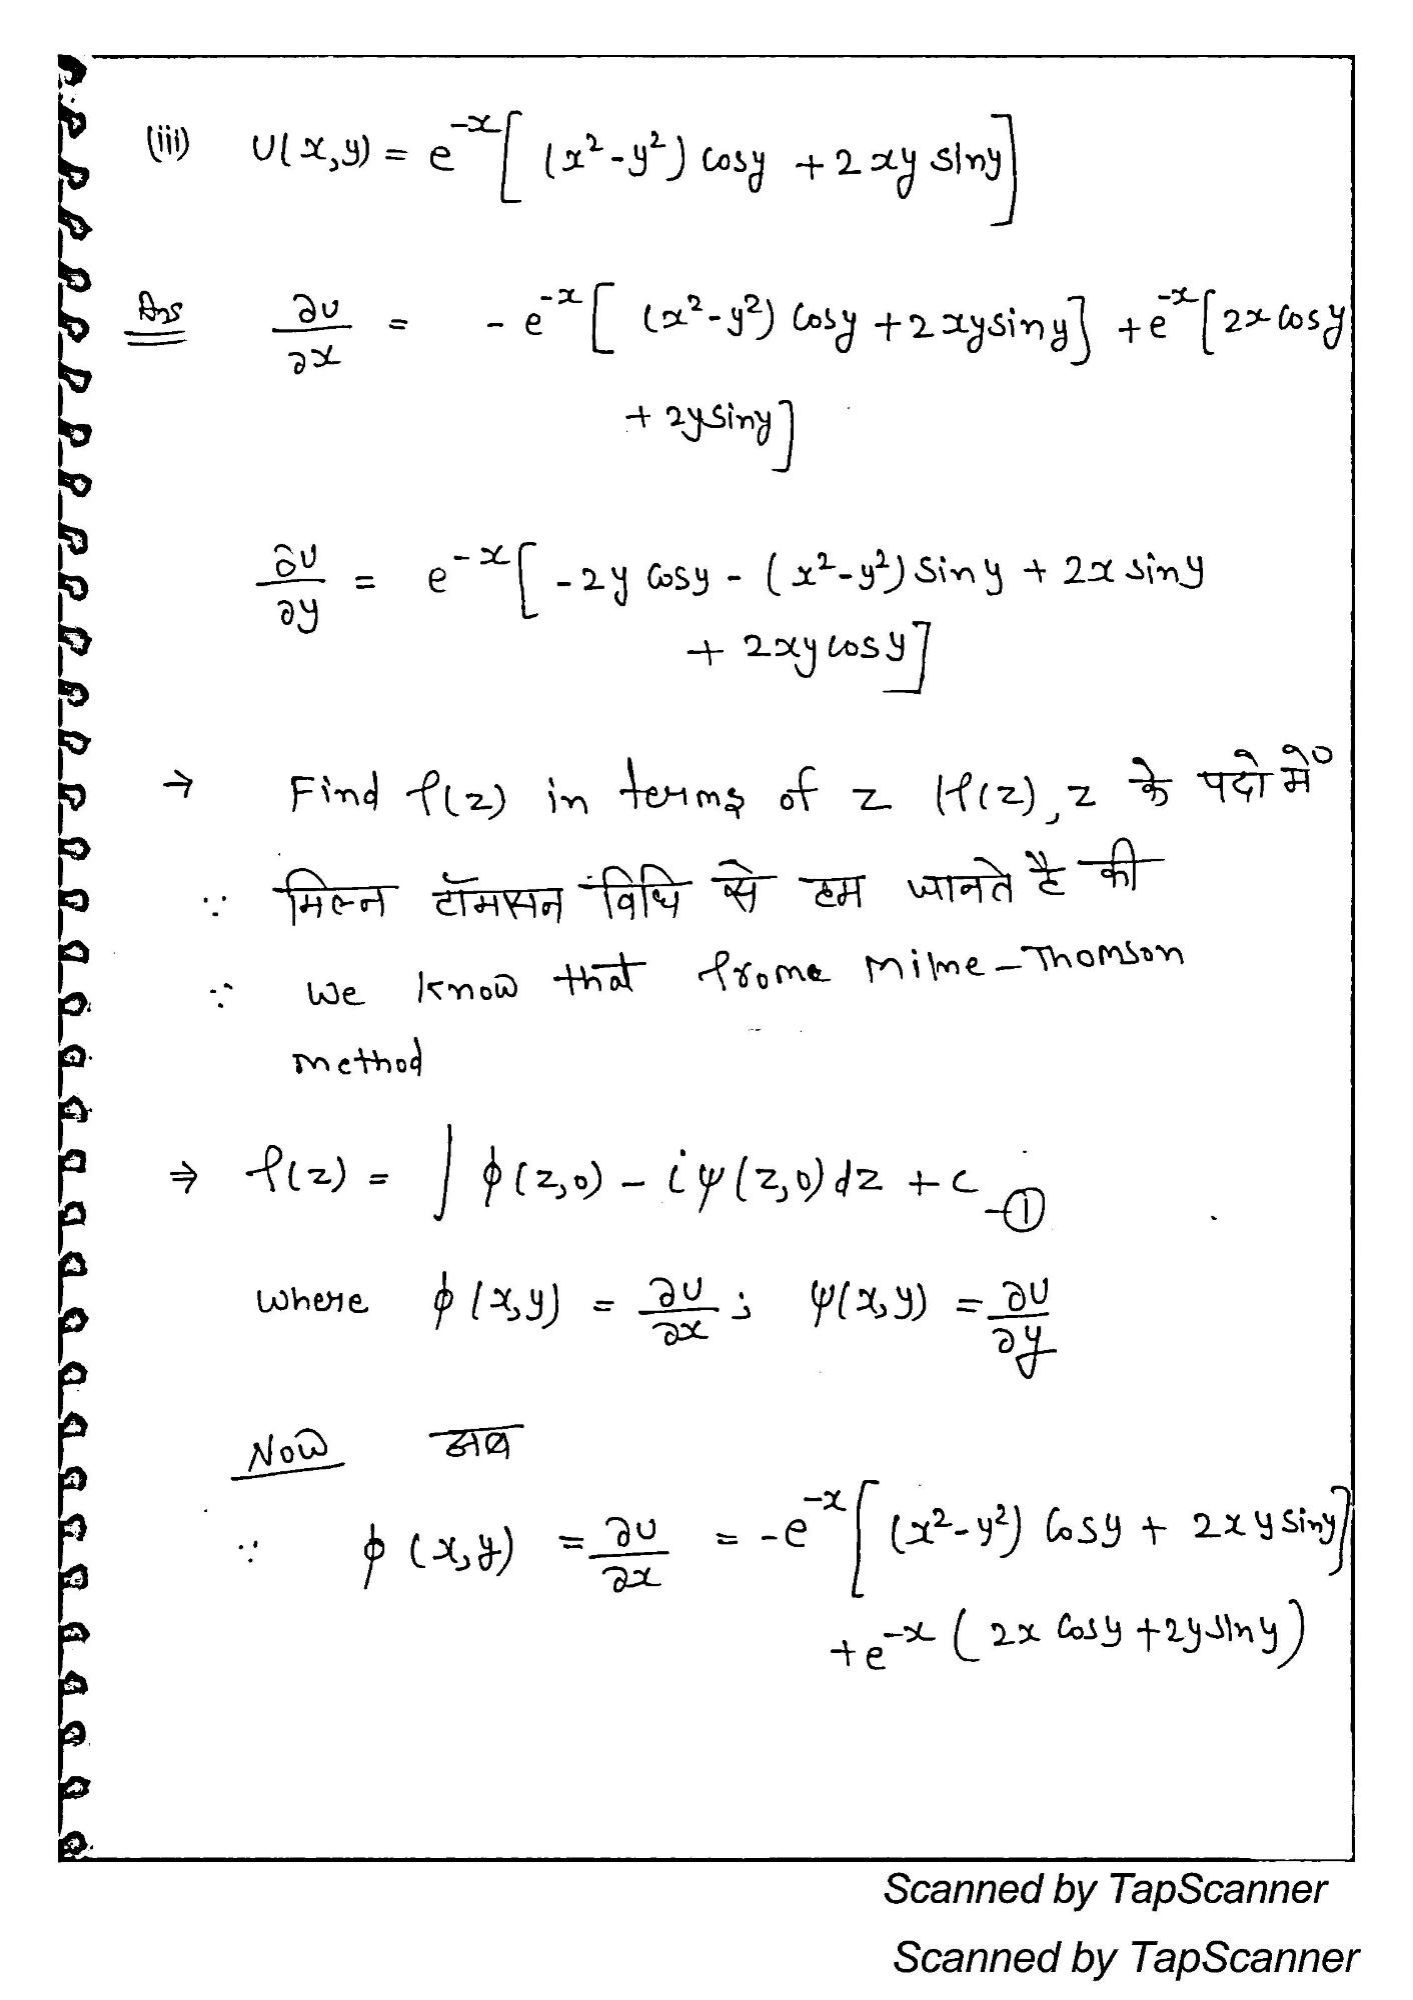 (iii) U(x,y) = e^{-x}[ (x²-y²) cosy + 2xy siny]
Ans ∂u/∂x = - e^{-x}[ (x²-y²) cosy + 2xysiny] + e^{-x}[2x cosy
+ 2ysiny]
∂u/∂y = e^{-x}[ -2y cosy - (x²-y²) siny + 2x siny
+ 2xycosy]
→ Find f(z) in terms of z (f(z), z के पदो में
∵ मिल्न टॉमसन विधि से हम जानते है की
∵ We know that frome Milne-Thomson
method
⇒ f(z) = ∫ φ(z,0) - iψ(z,0)dz + c -①
where φ(x,y) = ∂u/∂x ; ψ(x,y) = ∂u/∂y
Now अब
∵ φ(x,y) = ∂u/∂x = -e^{-x}[ (x²-y²) cosy + 2xysiny]
+e^{-x} ( 2x cosy + 2ysiny)
Scanned by TapScanner
Scanned by TapScanner